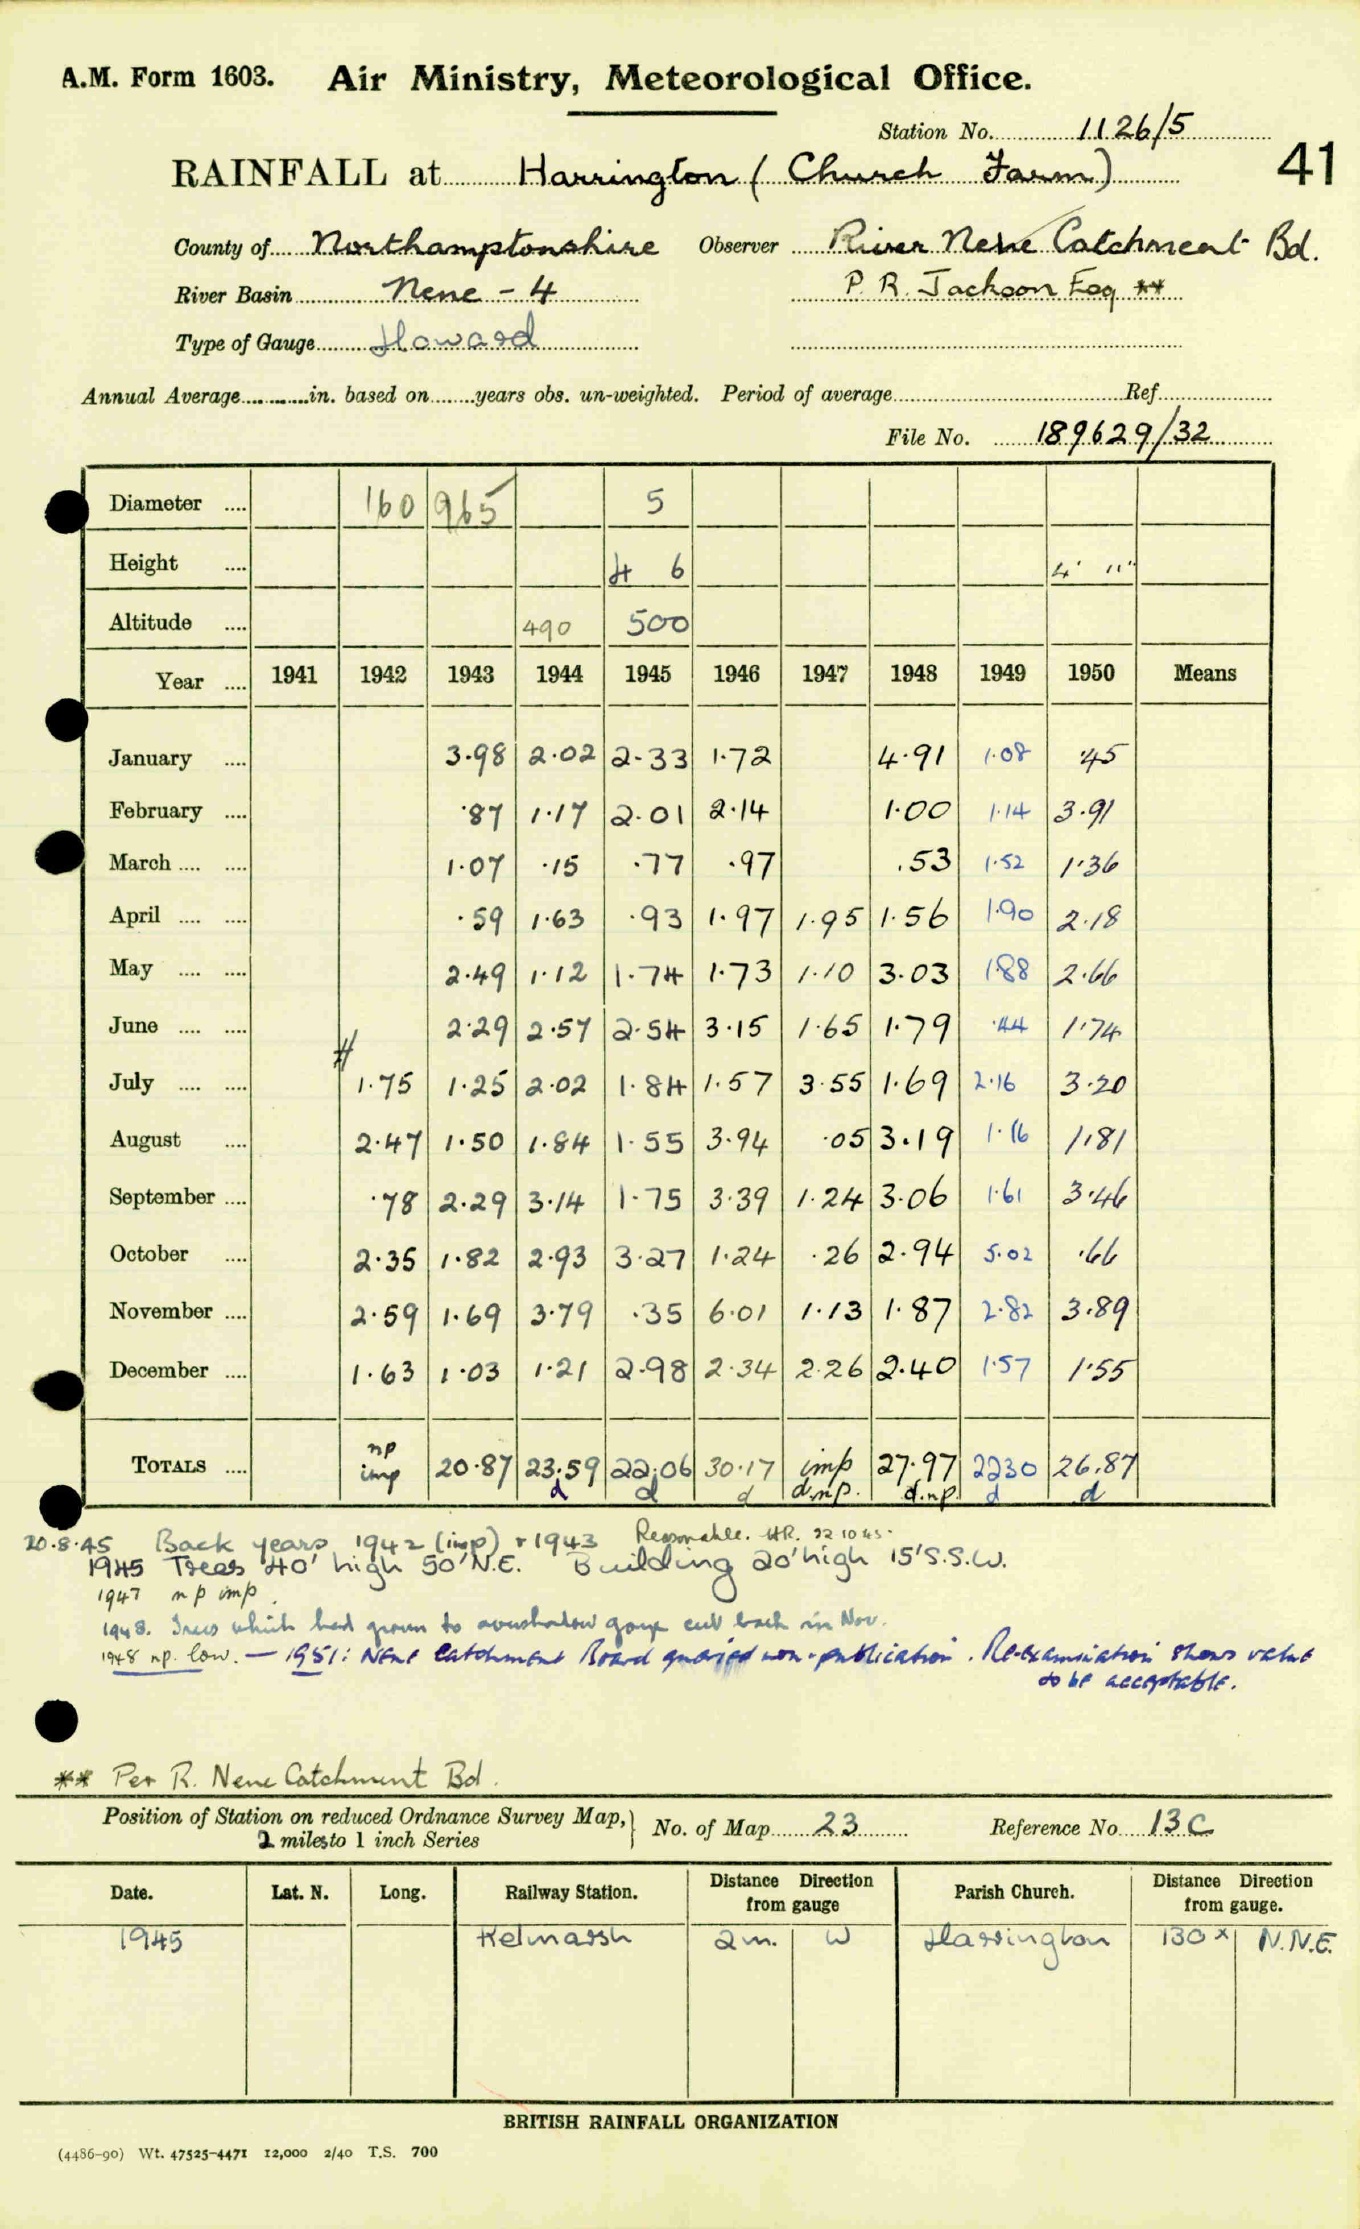 A.M. Form 1603. Air Ministry, Meteorological Office.
Station No. 1126/5
41
RAINFALL at Harrington (Church Farm)
County of Northamptonshire Observer River Nene Catchment Bd.
River Basin Nene - 4 P. R. Jackson Esq **
Type of Gauge Howard
Annual Average in. based on years obs. un-weighted. Period of average Ref
File No. 189629/32
Diameter 160 965 5
Height 4 6 4' 11"
Altitude 490 500
Year 1941 1942 1943 1944 1945 1946 1947 1948 1949 1950 Means
January 3.98 2.02 2.33 1.72 4.91 1.08 .45
February .87 1.17 2.01 2.14 1.00 1.14 3.91
March 1.07 .15 .77 .97 .53 1.52 1.36
April .59 1.63 .93 1.97 1.95 1.56 1.90 2.18
May 2.49 1.12 1.74 1.73 1.10 3.03 1.88 2.66
June 2.29 2.57 2.54 3.15 1.65 1.79 .44 1.74
July 1.75 1.25 2.02 1.84 1.57 3.55 1.69 2.16 3.20
August 2.47 1.50 1.84 1.55 3.94 .05 3.19 1.16 1.81
September .78 2.29 3.14 1.75 3.39 1.24 3.06 1.61 3.46
October 2.35 1.82 2.93 3.27 1.24 .26 2.94 5.02 .66
November 2.59 1.69 3.79 .35 6.01 1.13 1.87 2.82 3.89
December 1.63 1.03 1.21 2.98 2.34 2.26 2.40 1.57 1.55
np
TOTALS imp 20.87 23.59 22.06 30.17 imp 27.97 2230 26.87
d d d d.np. d.np. d d
20.8.45 Back years 1942 (imp) + 1943 Reasonable. HR. 22 10 45.
1945 Trees 40' high 50' N.E. Building 20' high 15' S.S.W.
1947 np imp.
1948. Trees which had grown to overshadow gauge cut back in Nov.
1948 np. low. — 1951: Nene Catchment Board queried non-publication. Re-examination shows value
to be acceptable.
** Per R. Nene Catchment Bd.
Position of Station on reduced Ordnance Survey Map, No. of Map 23 Reference No 13C
2 miles to 1 inch Series
Date. Lat. N. Long. Railway Station. Distance Direction from gauge Parish Church. Distance Direction from gauge.
1945 Kelmarsh 2m. W Harrington 130x N.N.E.
BRITISH RAINFALL ORGANIZATION
(4486-90) Wt. 47525-4471 12,000 2/40 T.S. 700